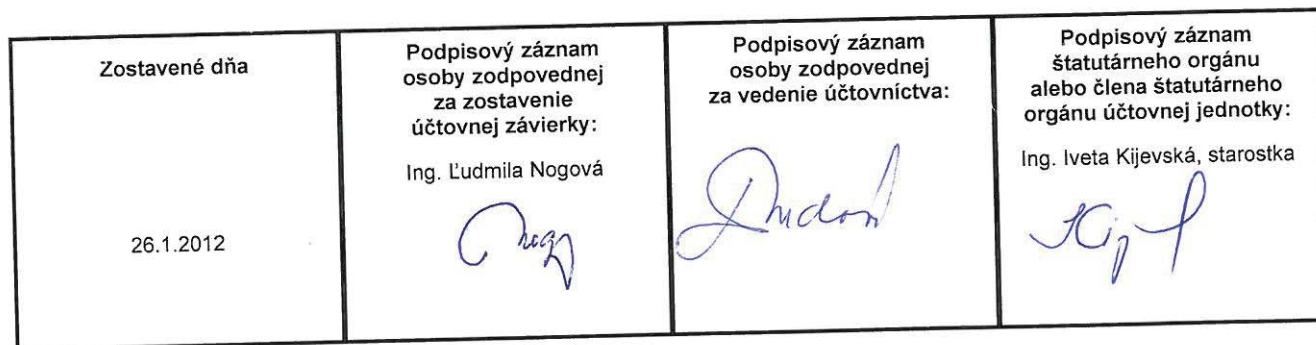 Zostavené dňa
26.1.2012
Podpisový záznam
osoby zodpovednej
za zostavenie
účtovnej závierky:
Ing. Ľudmila Nogová
Podpisový záznam
osoby zodpovednej
za vedenie účtovníctva:
Podpisový záznam
štatutárneho orgánu
alebo člena štatutárneho
orgánu účtovnej jednotky:
Ing. Iveta Kijevská, starostka